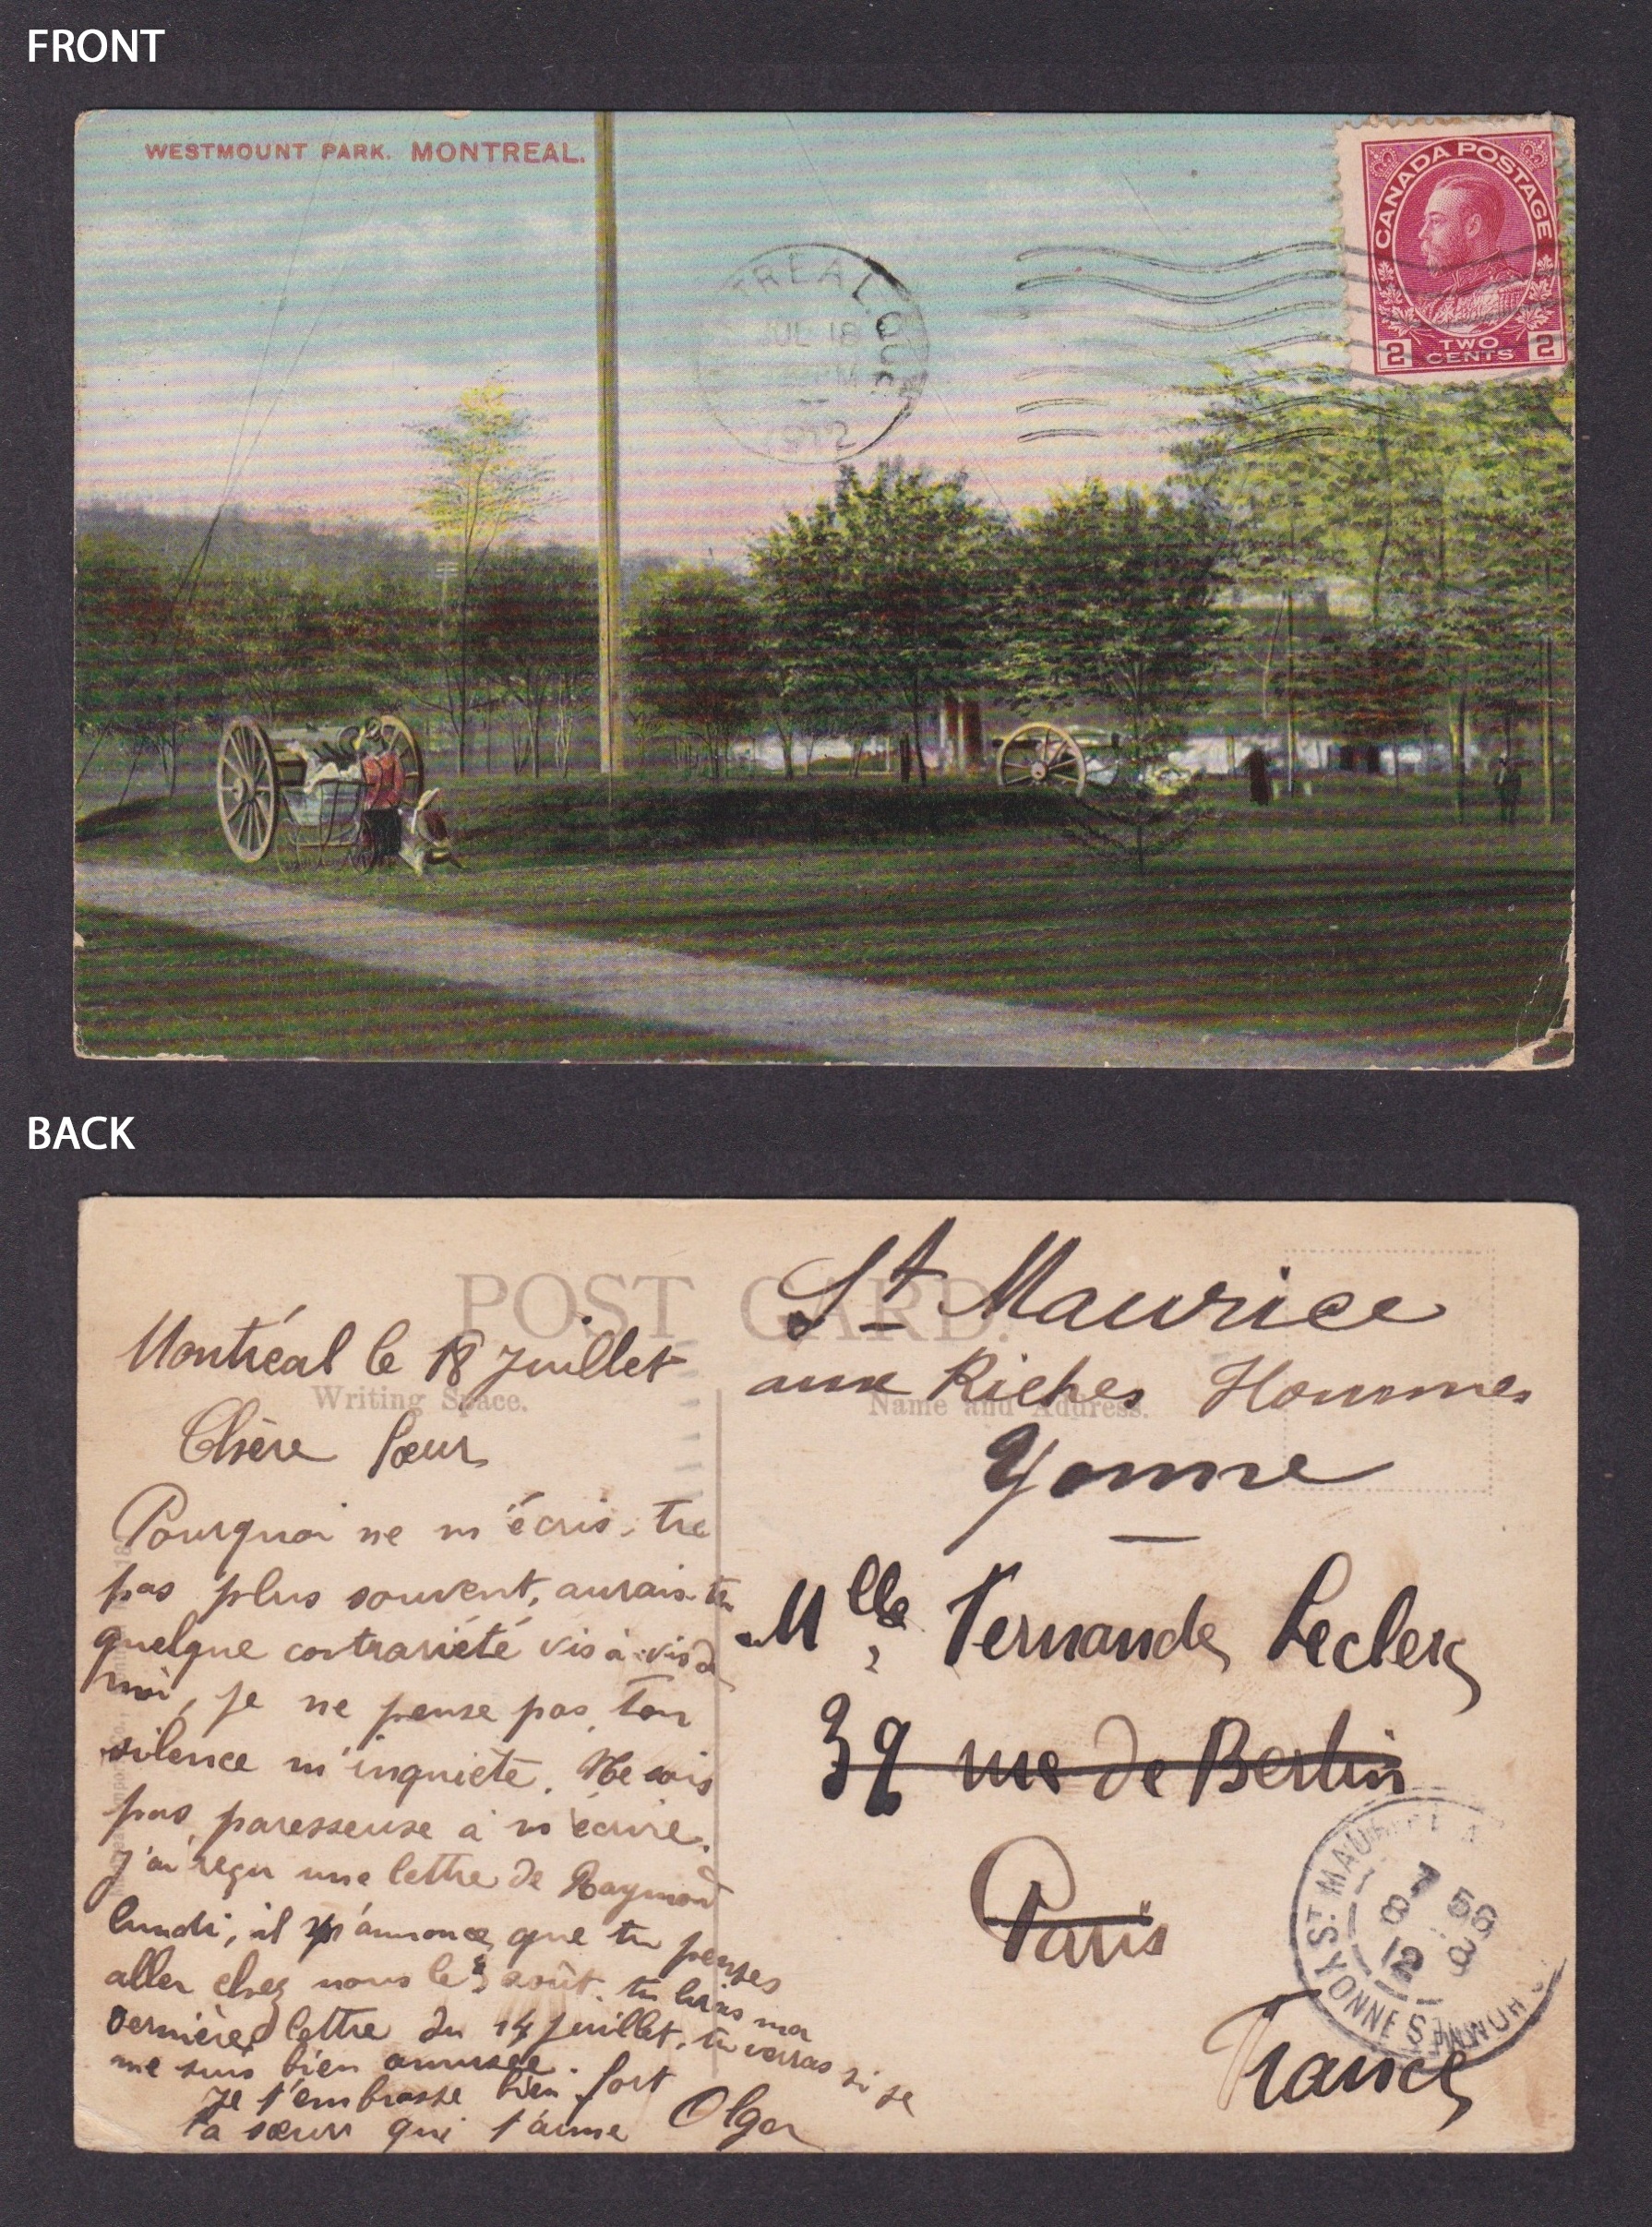 FRONT
WESTMOUNT PARK. MONTREAL.
CANADA POSTAGE
2 TWO CENTS 2
TREAL. QUE
JUL 18
PM
1912
BACK
POST CARD.
Writing Space.
Name and Address.
Montréal le 18 Juillet
Chère Sœur
Pourquoi ne m'écris-tu
pas plus souvent, aurais-tu
quelque contrariété vis à vis de
moi, je ne pense pas, ton
silence m'inquiète. Ne sois
pas paresseuse à m'écrire.
J'ai reçu une lettre de Raymond
lundi, il m'annonce que tu penses
aller chez nous le août. tu liras ma
dernière lettre du 14 juillet. tu verras si je
me suis bien amusée.
Je t'embrasse bien fort
Ta sœur qui t'aime Olga
St Maurice
aux Riches Hommes
Yonne
Mlle Fernande Leclerc
39 rue de Berlin
Paris
France
ST MAURICE A
7 55
8 8
12
YONNE